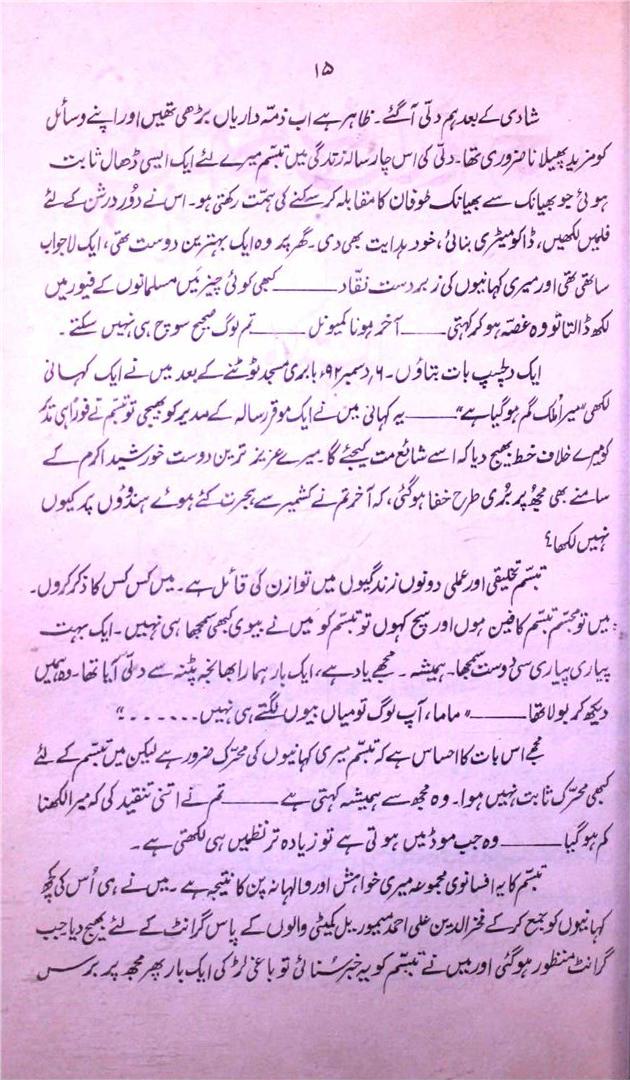 ۱۵
شادی کے بعد ہم دلّی آ گئے۔ ظاہر ہے اب ذمّہ داریاں بڑھی تھیں اور اپنے وسائل
کو مزید پھیلانا ضروری تھا۔ دلّی کی اس چار سالہ زندگی میں تبسّم میرے لئے ایک ایسی ڈھال ثابت
ہوئی جو بھیانک سے بھیانک طوفان کا مقابلہ کر سکنے کی ہمّت رکھتی ہو۔ اس نے دُور درشن کے لئے
فلمیں لکھیں، ڈاکومیٹری بنائی، خود ہدایت بھی دی۔ گھر پر وہ ایک بہترین دوست تھی، ایک لاجواب
ساتھی تھی اور میری کہانیوں کی زبردست نقّاد ــــــ کبھی کوئی چیز میں مسلمانوں کے فیور میں
لکھ ڈالتا تو وہ غصّہ ہو کر کہتی ــــــ آخر ہو نا کمیونل ــــــ تم لوگ صحیح سوچ ہی نہیں سکتے۔
ایک دلچسپ بات بتاؤں۔ ۶ دسمبر ۹۲ء بابری مسجد ٹوٹنے کے بعد میں نے ایک کہانی
لکھی "میرا ملک گم ہو گیا ہے" ــــــ یہ کہانی میں نے ایک موقر رسالہ کے مدیر کو بھیجی تو تبسّم نے فوراً ہی مدیر
کو میرے خلاف خط بھیج دیا کہ اسے شائع مت کیجئے گا۔ میرے عزیز ترین دوست خورشید اکرم کے
سامنے بھی مجھ پر بُری طرح خفا ہو گئی، کہ آخر تم نے کشمیر سے ہجرت کئے ہوئے ہندوؤں پر کیوں
نہیں لکھا؟
تبسّم تخلیقی اور عملی دونوں زندگیوں میں توازن کی قائل ہے۔ میں کس کس کا ذکر کروں۔
میں تو مجسّم تبسّم کا فین ہوں اور سچ کہوں تو تبسّم کو میں نے بیوی کبھی سمجھا ہی نہیں۔ ایک بہت
پیاری پیاری سی دوست سمجھا۔ ہمیشہ۔ مجھے یاد ہے، ایک بار ہمارا بھانجہ پٹنہ سے دلّی آیا تھا۔ وہ ہمیں
دیکھ کر بولا تھا ــــــ "ماما، آپ لوگ تو میاں بیوں لگتے ہی نہیں۔۔۔۔۔۔۔"
مجھے اس بات کا احساس ہے کہ تبسّم میری کہانیوں کی محرّک ضرور ہے لیکن میں تبسّم کے لئے
کبھی محرّک ثابت نہیں ہوا۔ وہ مجھ سے ہمیشہ کہتی ہے ــــــ تم نے اتنی تنقید کی کہ میرا لکھنا
کم ہو گیا ــــــ وہ جب موڈ میں ہوتی ہے تو زیادہ تر نظمیں ہی لکھتی ہے۔
تبسّم کا یہ افسانوی مجموعہ میری خواہش اور والہانہ پن کا نتیجہ ہے۔ میں نے ہی اُس کی کچھ
کہانیوں کو جمع کر کے فخر الدین علی احمد میموریل کمیٹی والوں کے پاس گرانٹ کے لئے بھیج دیا جب
گرانٹ منظور ہو گئی اور میں نے تبسّم کو یہ خبر سُنائی تو باغی لڑکی ایک بار پھر مجھ پر برس